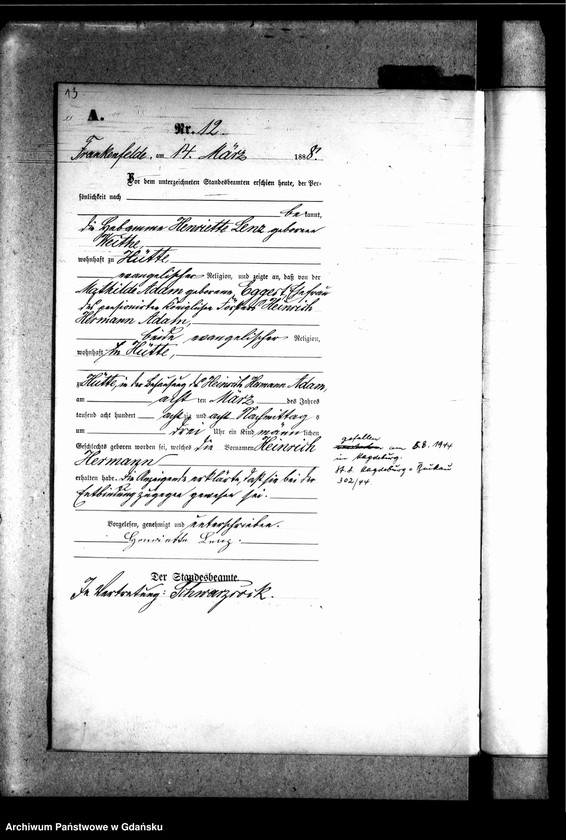 13
A.
Nr. 12
Frankenfelde, am 14. März 1888.
Vor dem unterzeichneten Standesbeamten erschien heute, der Per-
sönlichkeit nach
be kannt,
die Hebamme Henriette Lenz geborene
wohnhaft zu Hütte,
evangelischer Religion, und zeigte an, daß von der
Mathilde Adam geborene Eggert, Ehefrau
des pensionirten Königlichen Försters Heinrich
Hermann Adam,
beide evangelischer Religion,
wohnhaft zu Hütte,
zu Hütte, in der Behausung des Heinrich Hermann Adam,
am acht ten März des Jahres
tausend acht hundert achtzig und acht Nachmittag s
um drei Uhr ein Kind männ lichen
Geschlechts geboren worden sei, welches die Vornamen Heinrich
Hermann
erhalten habe. Die Anzeigende erklärte, daß sie bei der
Entbindung zugegen gewesen sei.
Vorgelesen, genehmigt und unterschrieben.
Henriette Lenz.
Der Standesbeamte.
In Vertretung:
gefallen
am 5.8.1944
in Magdeburg.
St. A. Magdeburg - Buckau
302/44
Archiwum Państwowe w Gdańsku